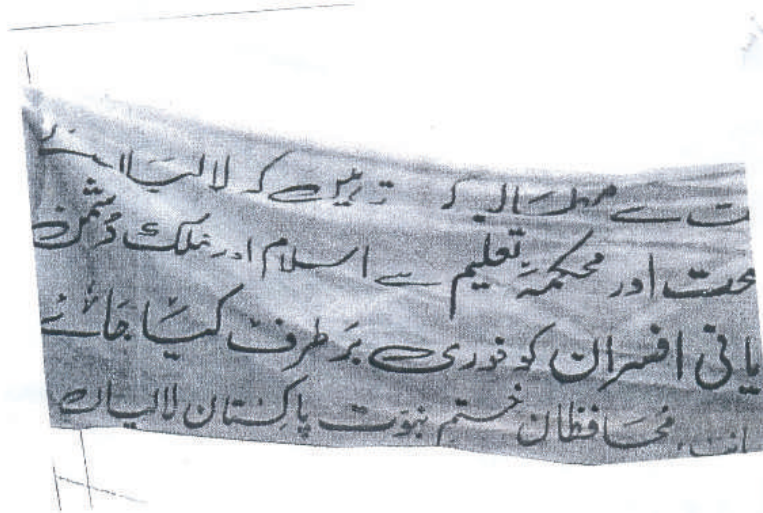 ت سے مطالبہ کرتے ہیں کہ لالیاں
صحت اور محکمہ تعلیم سے اسلام اور ملک دشمن
یانی افسران کو فوری برطرف کیا جائے
محافظان ختم نبوت پاکستان لالیاں